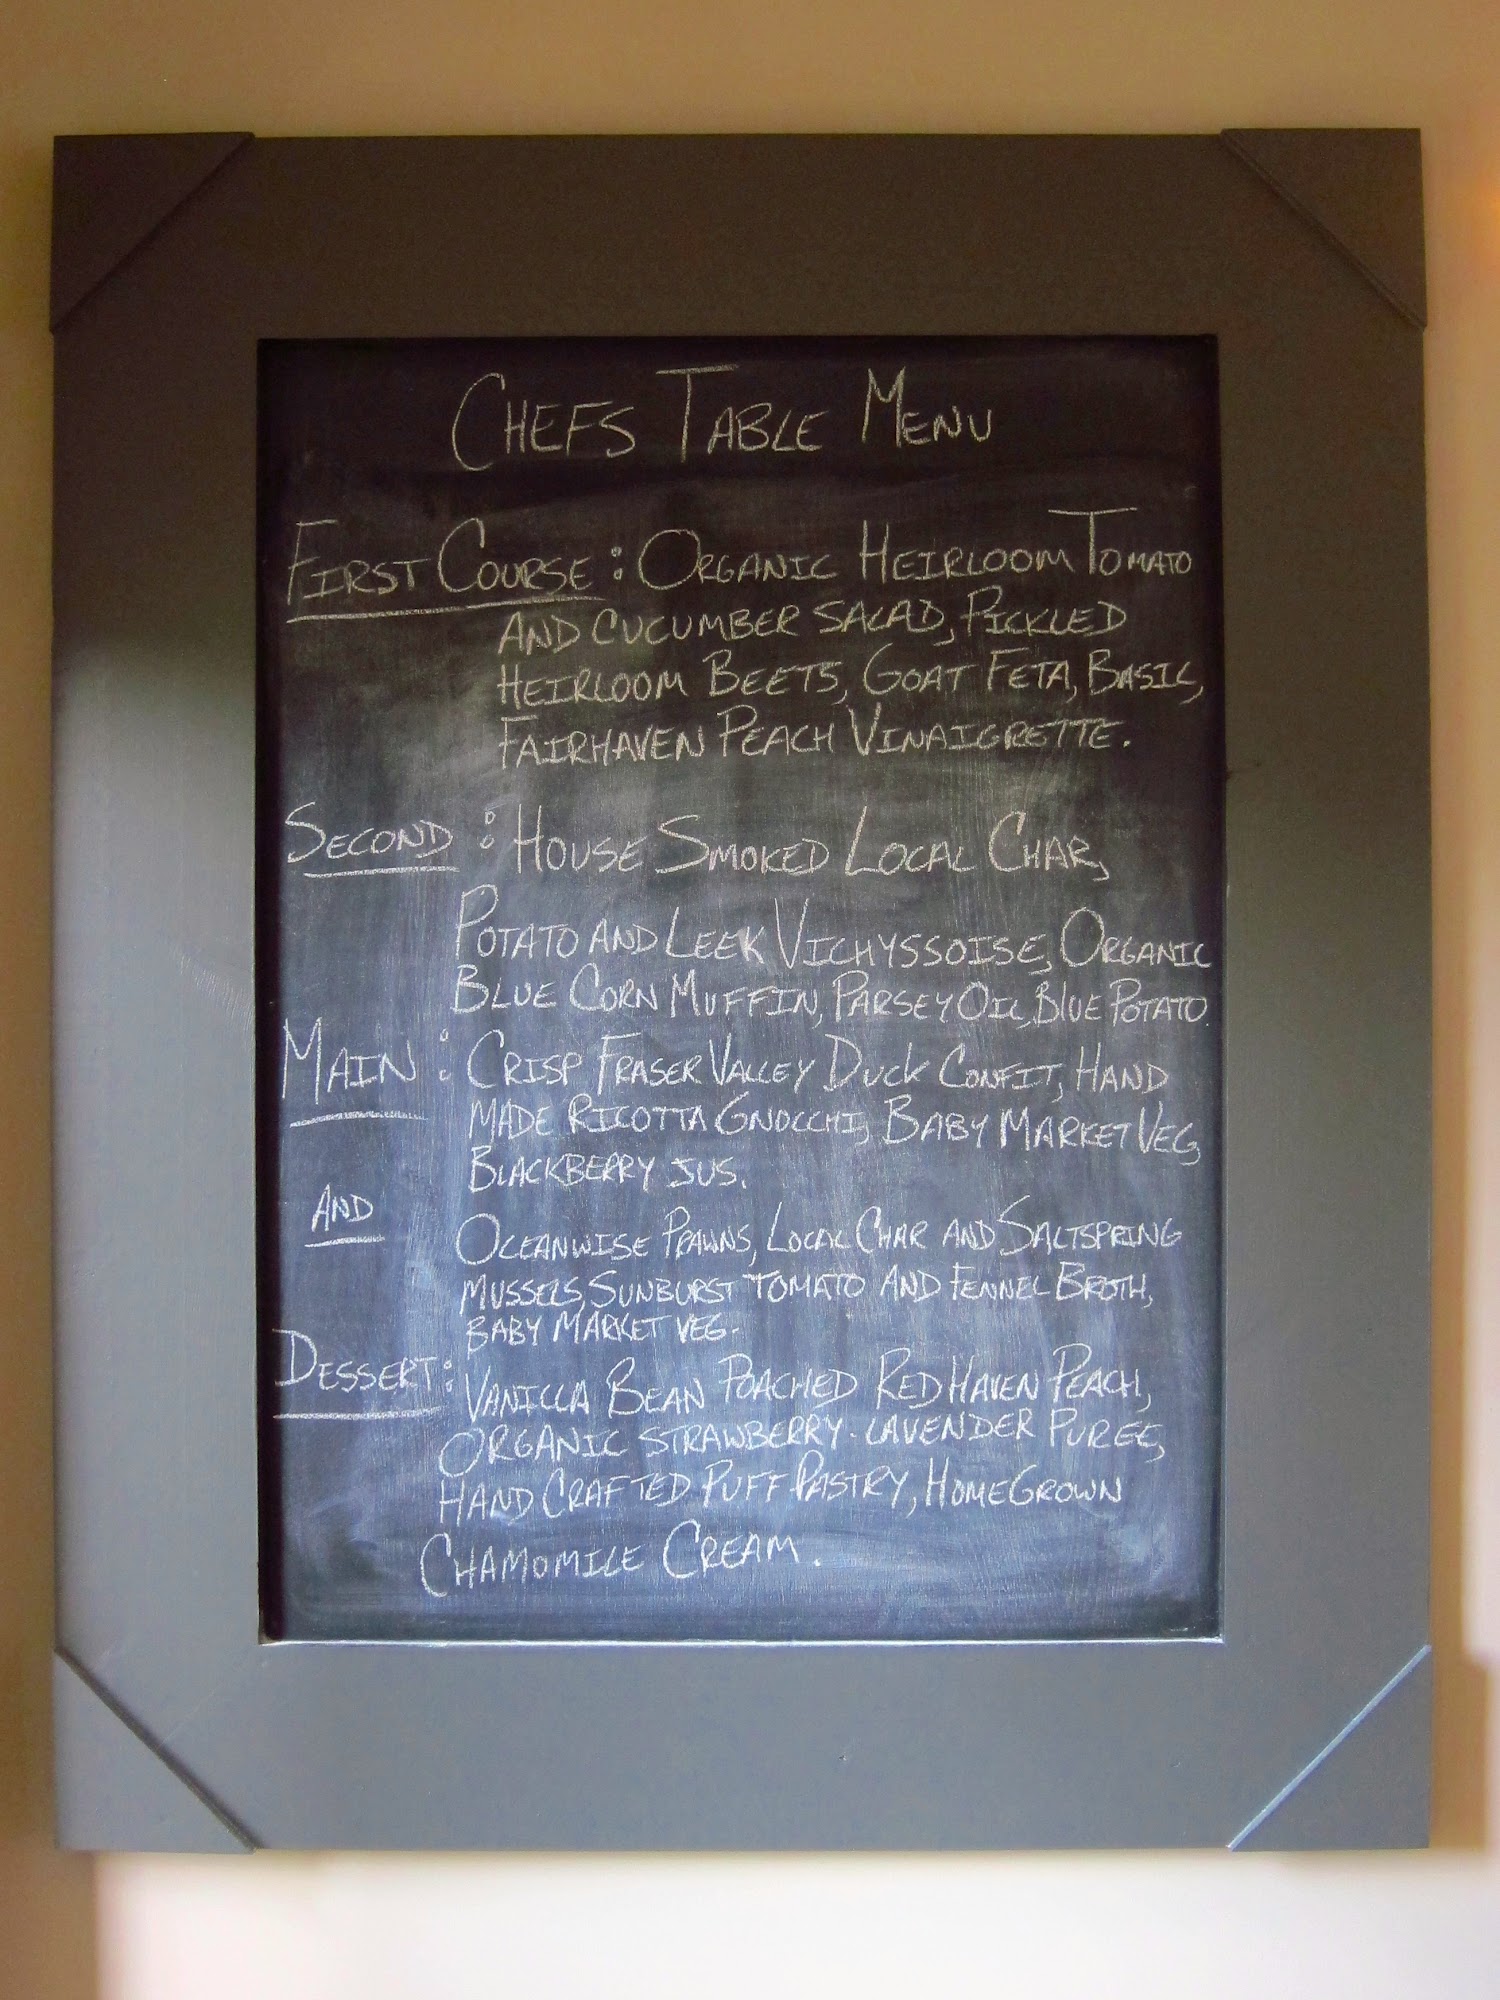 CHEFS TABLE MENU
FIRST COURSE : ORGANIC HEIRLOOM TOMATO
AND CUCUMBER SALAD, PICKLED
HEIRLOOM BEETS, GOAT FETA, BASIL,
FAIRHAVEN PEACH VINAIGRETTE.
SECOND : HOUSE SMOKED LOCAL CHAR,
POTATO AND LEEK VICHYSSOISE, ORGANIC
BLUE CORN MUFFIN, PARSEY OIL, BLUE POTATO.
MAIN : CRISP FRASER VALLEY DUCK CONFIT, HAND
MADE RICOTTA GNOCCHI, BABY MARKET VEG,
BLACKBERRY JUS.
AND OCEANWISE PRAWNS, LOCAL CHAR AND SALTSPRING
MUSSELS, SUNBURST TOMATO AND FENNEL BROTH,
BABY MARKET VEG.
DESSERT : VANILLA BEAN POACHED RED HAVEN PEACH,
ORGANIC STRAWBERRY-LAVENDER PUREE,
HAND CRAFTED PUFF PASTRY, HOMEGROWN
CHAMOMILE CREAM.